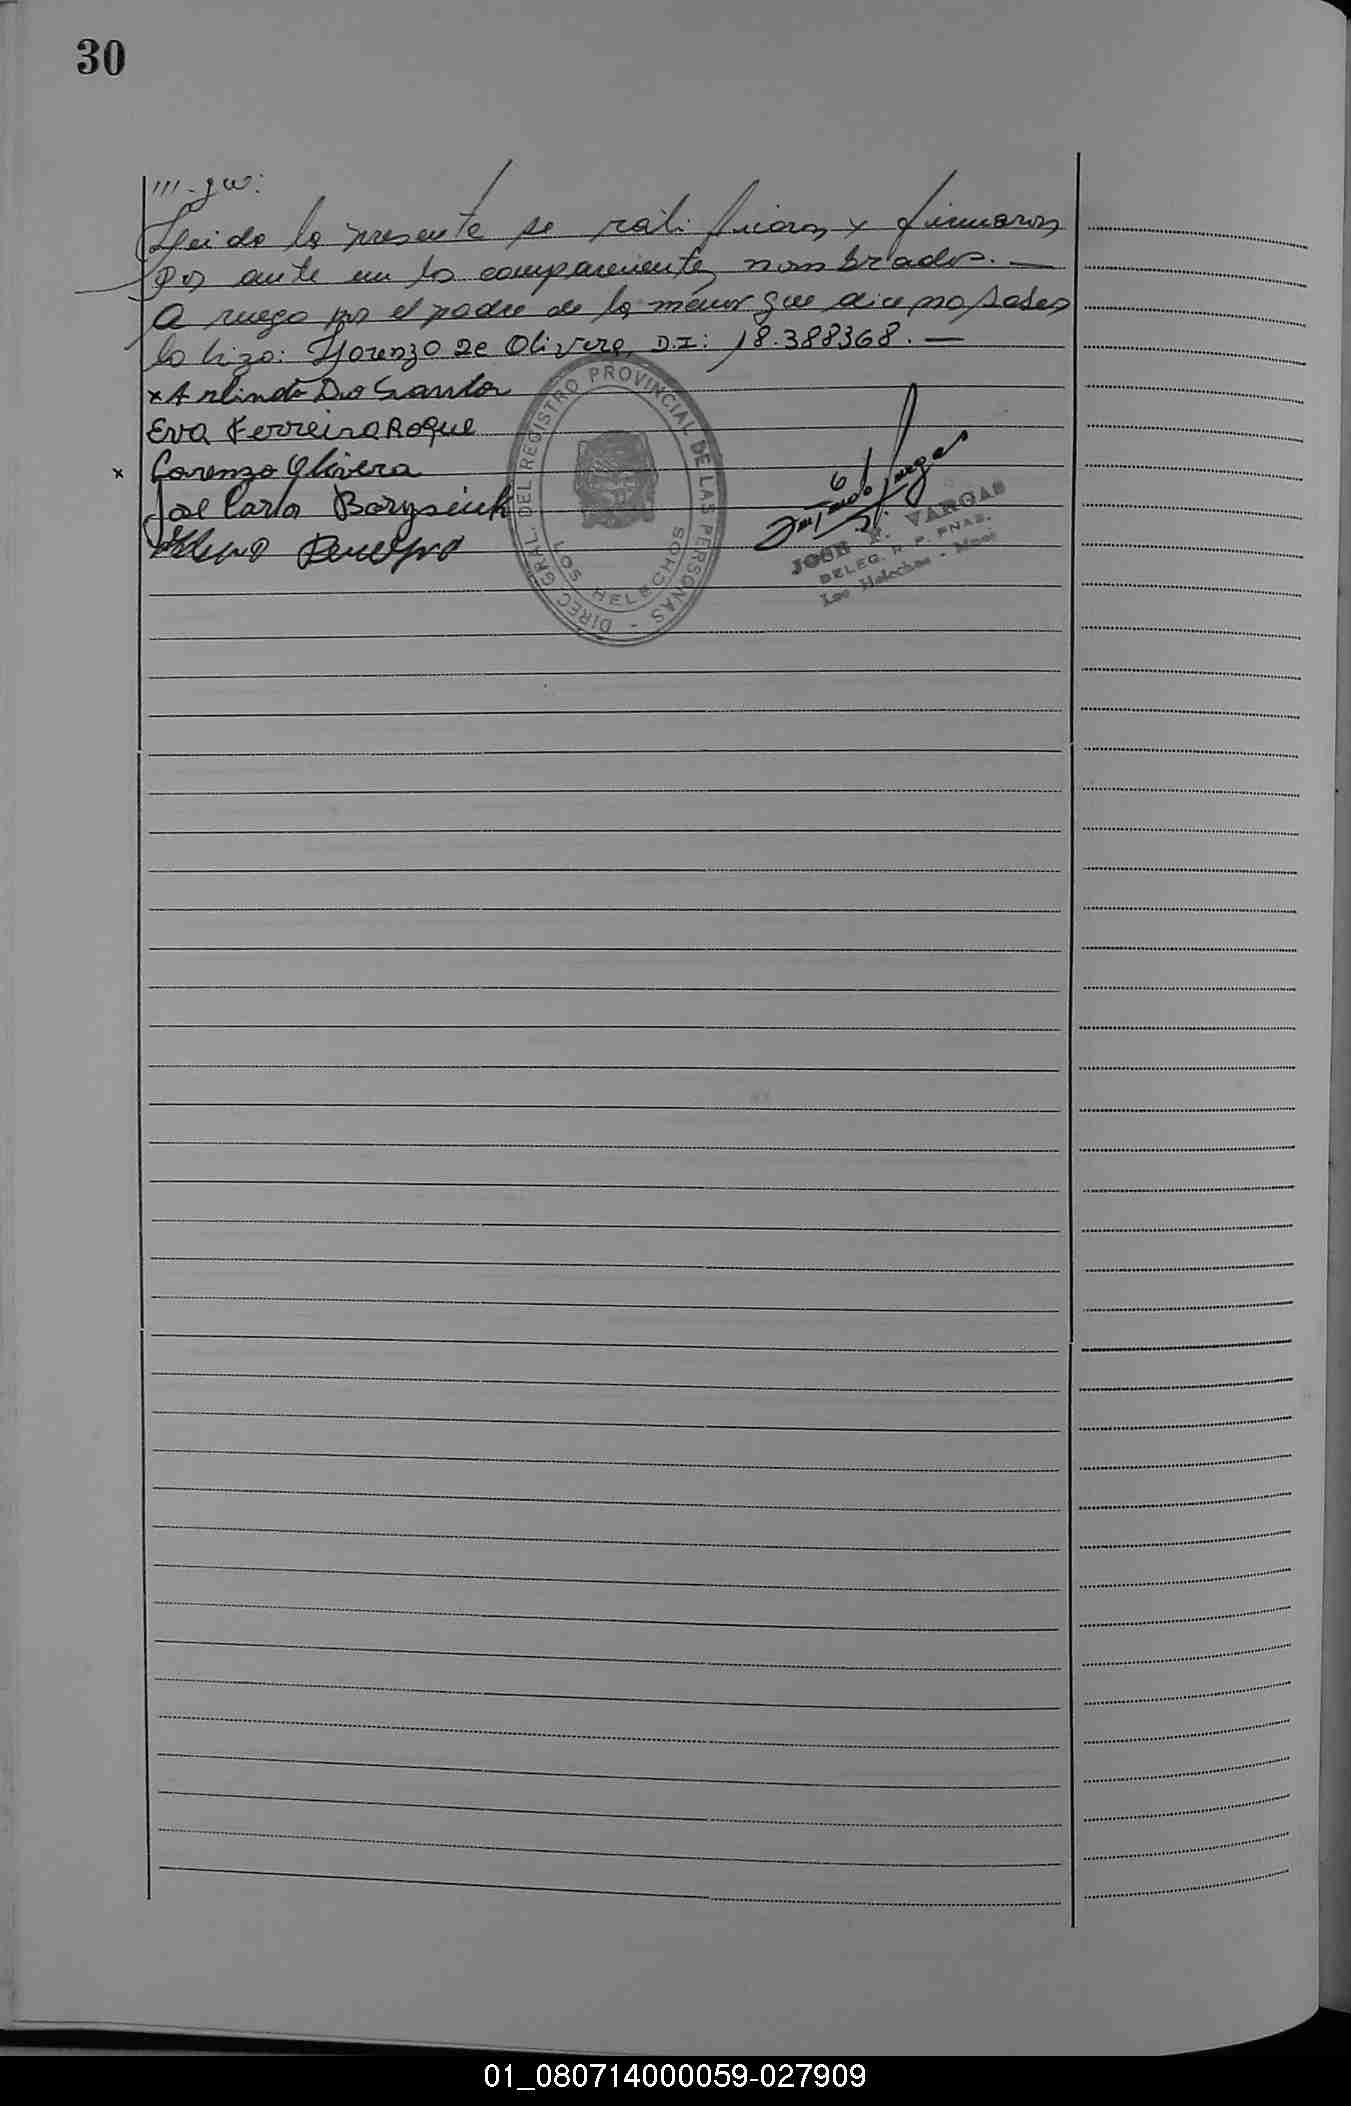 30
///-gue:
Leida la presente se ratificaron y firmaron
por ante mi los comparecientes nombrados. —
A ruego por el padre de la menor que dice no saber
lo hizo: Lorenzo De Olivera, D.I: 18.388368. —
x Arlindo Do Santos
Eva Ferreira Roque
x Lorenzo Olivera
José Carlos
DIREC. GRAL. DEL REGISTRO PROVINCIAL DE LAS PERSONAS -
LOS HELECHOS
JOSE R. VARGAS
DELEG. R. P. PNAS.
Los Helechos - Mnes
01_080714000059-027909